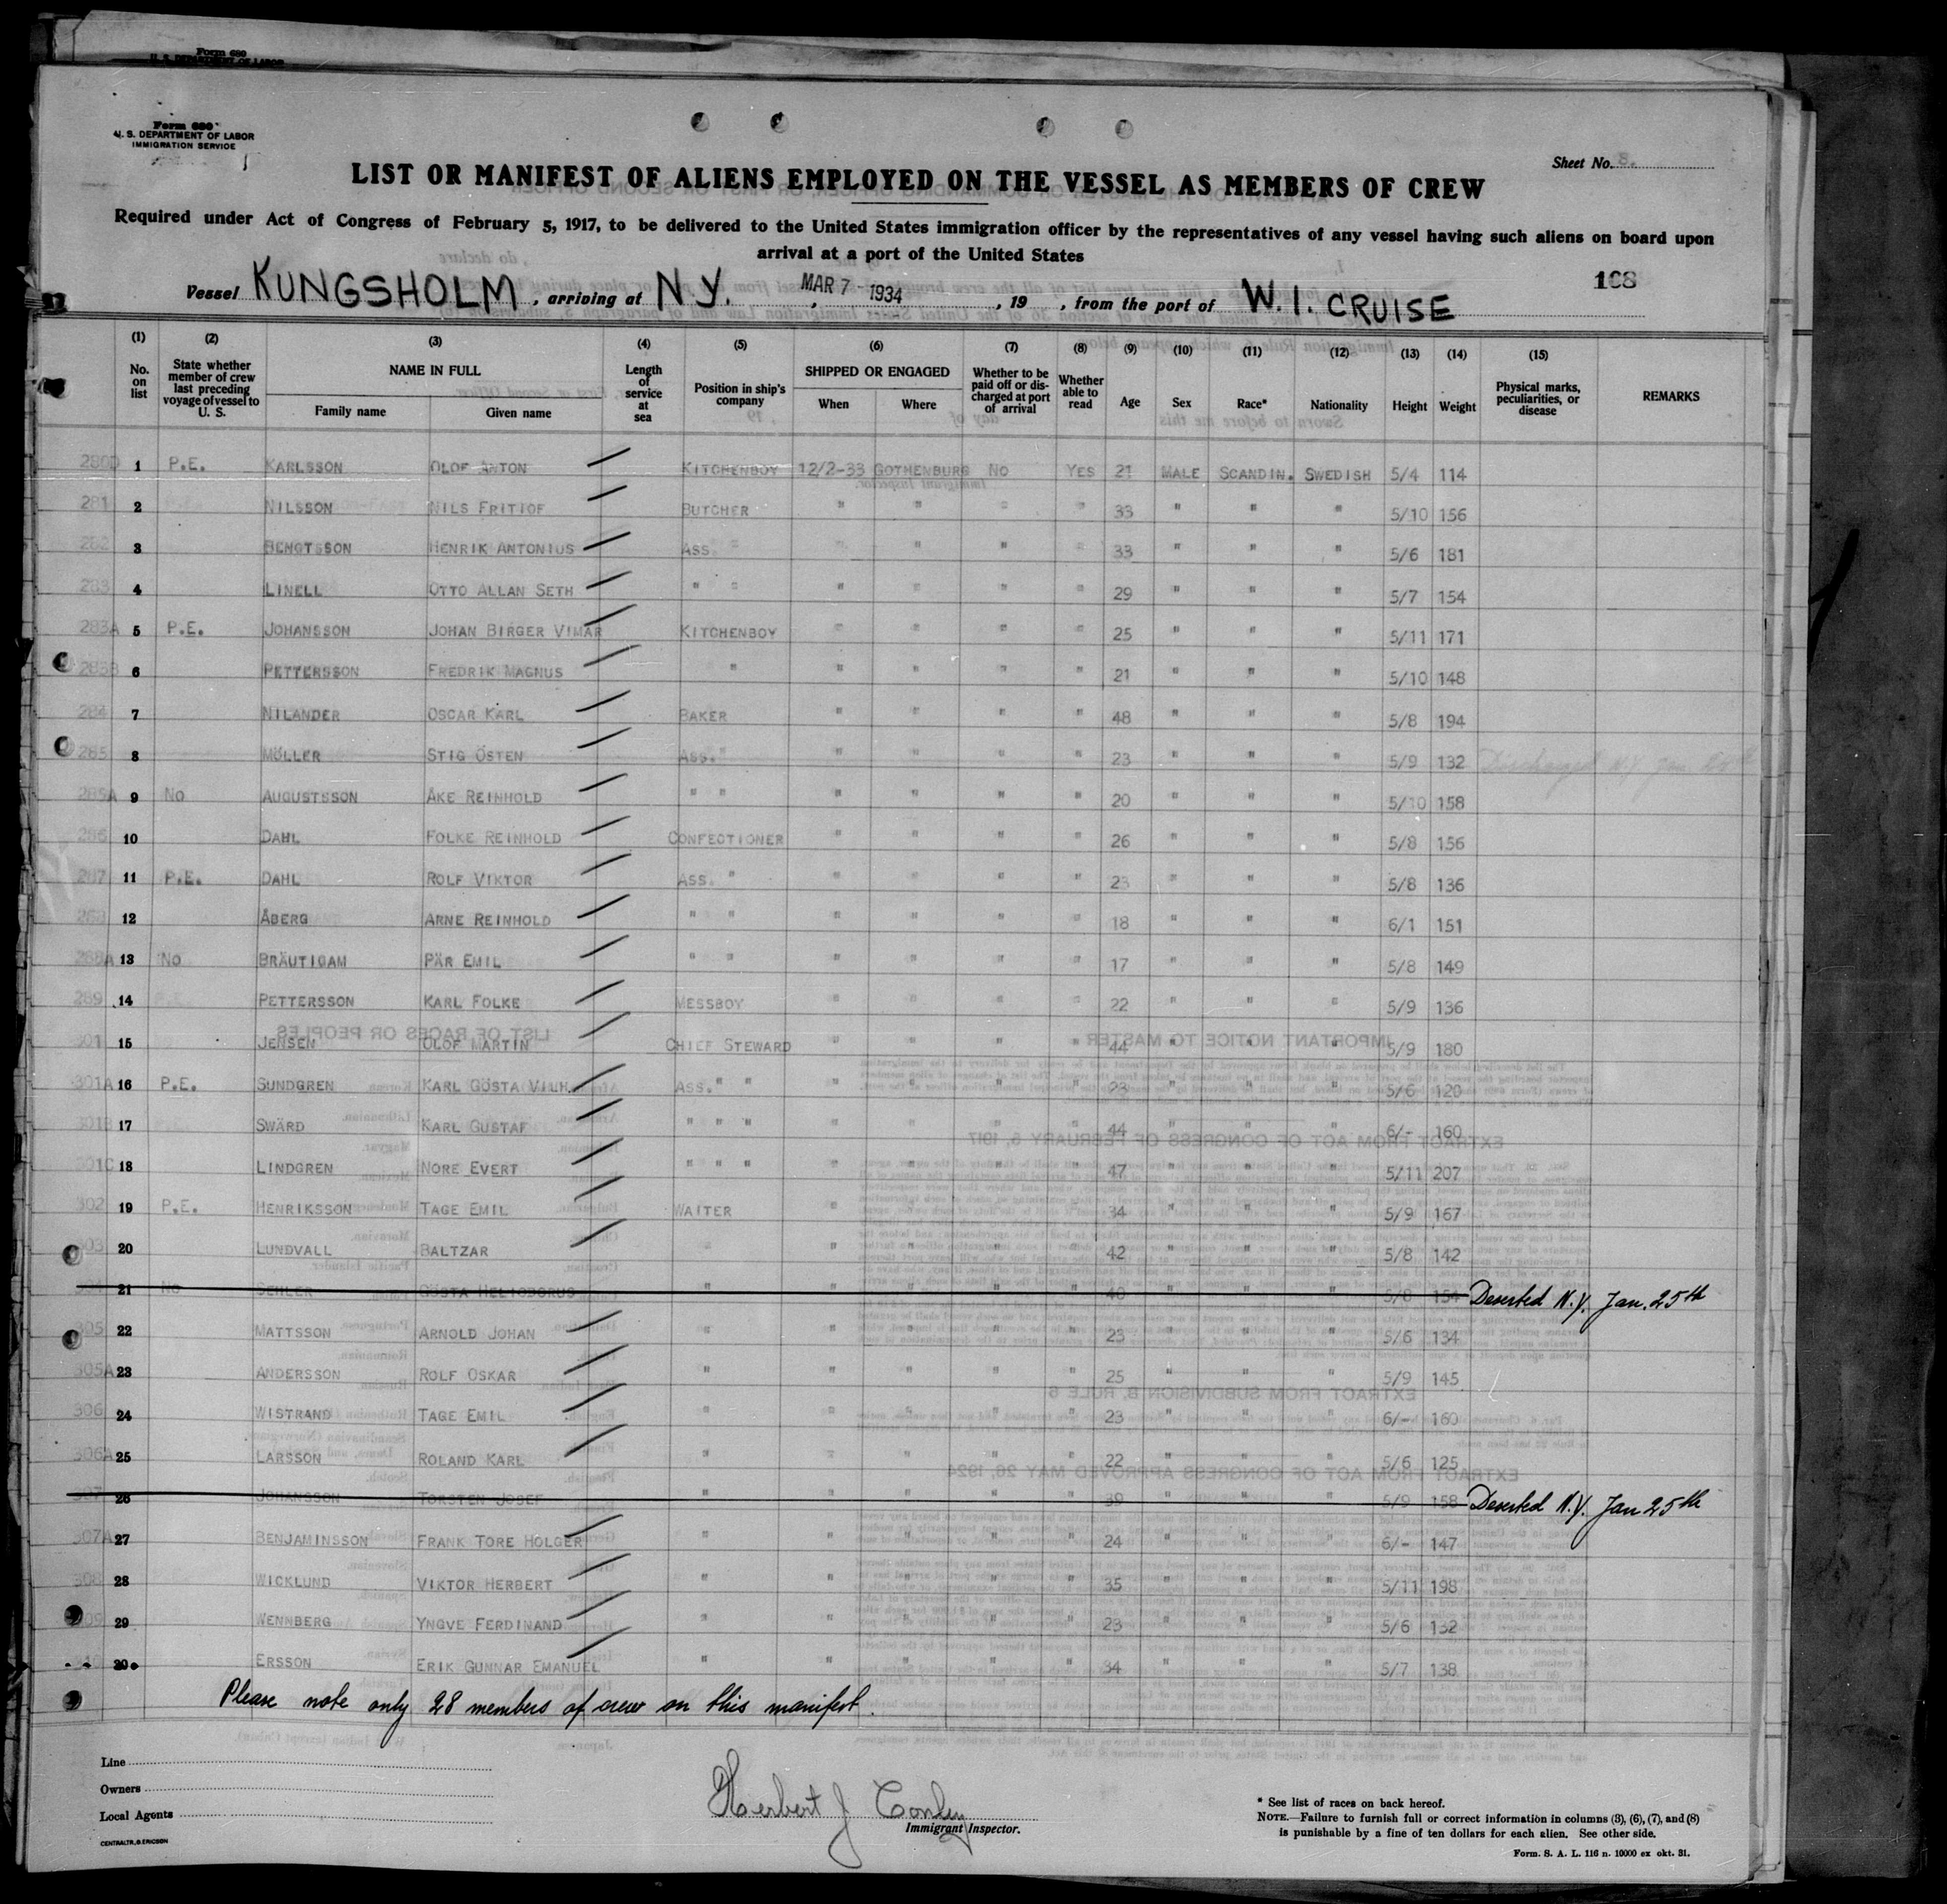 Form 680
U. S. DEPARTMENT OF LABOR
Form 680
U. S. DEPARTMENT OF LABOR
IMMIGRATION SERVICE
Sheet No. 8.
LIST OR MANIFEST OF ALIENS EMPLOYED ON THE VESSEL AS MEMBERS OF CREW
Required under Act of Congress of February 5, 1917, to be delivered to the United States immigration officer by the representatives of any vessel having such aliens on board upon
arrival at a port of the United States
168
Vessel KUNGSHOLM, arriving at N.Y. MAR 7 - 1934, 19 , from the port of W.I. CRUISE
(1) (2) (3) (4) (5) (6) (7) (8) (9) (10) (11) (12) (13) (14) (15)
No. on list State whether member of crew last preceding voyage of vessel to U. S. NAME IN FULL Family name Given name Length of service at sea Position in ship's company SHIPPED OR ENGAGED When Where Whether to be paid off or discharged at port of arrival Whether able to read Age Sex Race* Nationality Height Weight Physical marks, peculiarities, or disease REMARKS
280D 1 P.E. KARLSSON OLOF ANTON KITCHENBOY 12/2-33 GOTHENBURG NO YES 21 MALE SCANDIN. SWEDISH 5/4 114
281 2 NILSSON NILS FRITIOF BUTCHER " " " " 33 " " " 5/10 156
282 3 BENGTSSON HENRIK ANTONIUS ASS. " " " " " 33 " " " 5/6 181
283 4 LINELL OTTO ALLAN SETH " " " " " " 29 " " " 5/7 154
283A 5 P.E. JOHANSSON JOHAN BIRGER VIMAR KITCHENBOY " " " " 25 " " " 5/11 171
283B 6 PETTERSSON FREDRIK MAGNUS " " " " " 21 " " " 5/10 148
284 7 NILANDER OSCAR KARL BAKER " " " " 48 " " " 5/8 194
285 8 MÖLLER STIG ÖSTEN ASS. " " " " " 23 " " " 5/9 132 Discharged N.Y. Jan.
285A 9 NO AUGUSTSSON ÅKE REINHOLD " " " " " " 20 " " " 5/10 158
286 10 DAHL FOLKE REINHOLD CONFECTIONER " " " " 26 " " " 5/8 156
287 11 P.E. DAHL ROLF VIKTOR ASS. " " " " " 23 " " " 5/8 136
288 12 ÅBERG ARNE REINHOLD " " " " " " 18 " " " 6/1 151
288A 13 NO BRÄUTIGAM PÄR EMIL " " " " " " 17 " " " 5/8 149
289 14 PETTERSSON KARL FOLKE MESSBOY " " " " 22 " " " 5/9 136
301 15 JENSEN OLOF MARTIN CHIEF STEWARD " " " " 44 " " " 5/9 180
301A 16 P.E. SUNDGREN KARL GÖSTA VILH. ASS. " " " " " " 23 " " " 5/6 120
301B 17 SWÄRD KARL GUSTAF " " " " " " " 44 " " " 6/- 160
301C 18 LINDGREN NORE EVERT " " " " " " " 47 " " " 5/11 207
302 19 P.E. HENRIKSSON TAGE EMIL WAITER " " " " 34 " " " 5/9 167
303 20 LUNDVALL BALTZAR " " " " " 42 " " " 5/8 142
304 21 NO SEHLER GÖSTA HELIODORUS " " " " " 40 " " " 5/8 154 Deserted N.Y. Jan. 25th
305 22 MATTSSON ARNOLD JOHAN " " " " " 23 " " " 5/6 134
305A 23 ANDERSSON ROLF OSKAR " " " " " 25 " " " 5/9 145
306 24 WISTRAND TAGE EMIL " " " " " 23 " " " 6/- 160
306A 25 LARSSON ROLAND KARL " " " " " 22 " " " 5/6 125
307 26 JOHANSSON TORSTEN JOSEF " " " " " 39 " " " 5/9 158 Deserted N.Y. Jan 25th
307A 27 BENJAMINSSON FRANK TORE HOLGER " " " " " 24 " " " 6/- 147
308 28 WICKLUND VIKTOR HERBERT " " " " " 35 " " " 5/11 198
309 29 WENNBERG YNGVE FERDINAND " " " " " 23 " " " 5/6 132
30 ERSSON ERIK GUNNAR EMANUEL " " " " " 34 " " " 5/7 138
Please note only 28 members of crew on this manifest.
Line
Owners
Local Agents
CENTRALTR., G. ERICSON
Herbert J Conley
Immigrant Inspector.
* See list of races on back hereof.
NOTE.—Failure to furnish full or correct information in columns (3), (6), (7), and (8)
is punishable by a fine of ten dollars for each alien. See other side.
Form. S. A. L. 116 n. 10000 ex okt. 31.